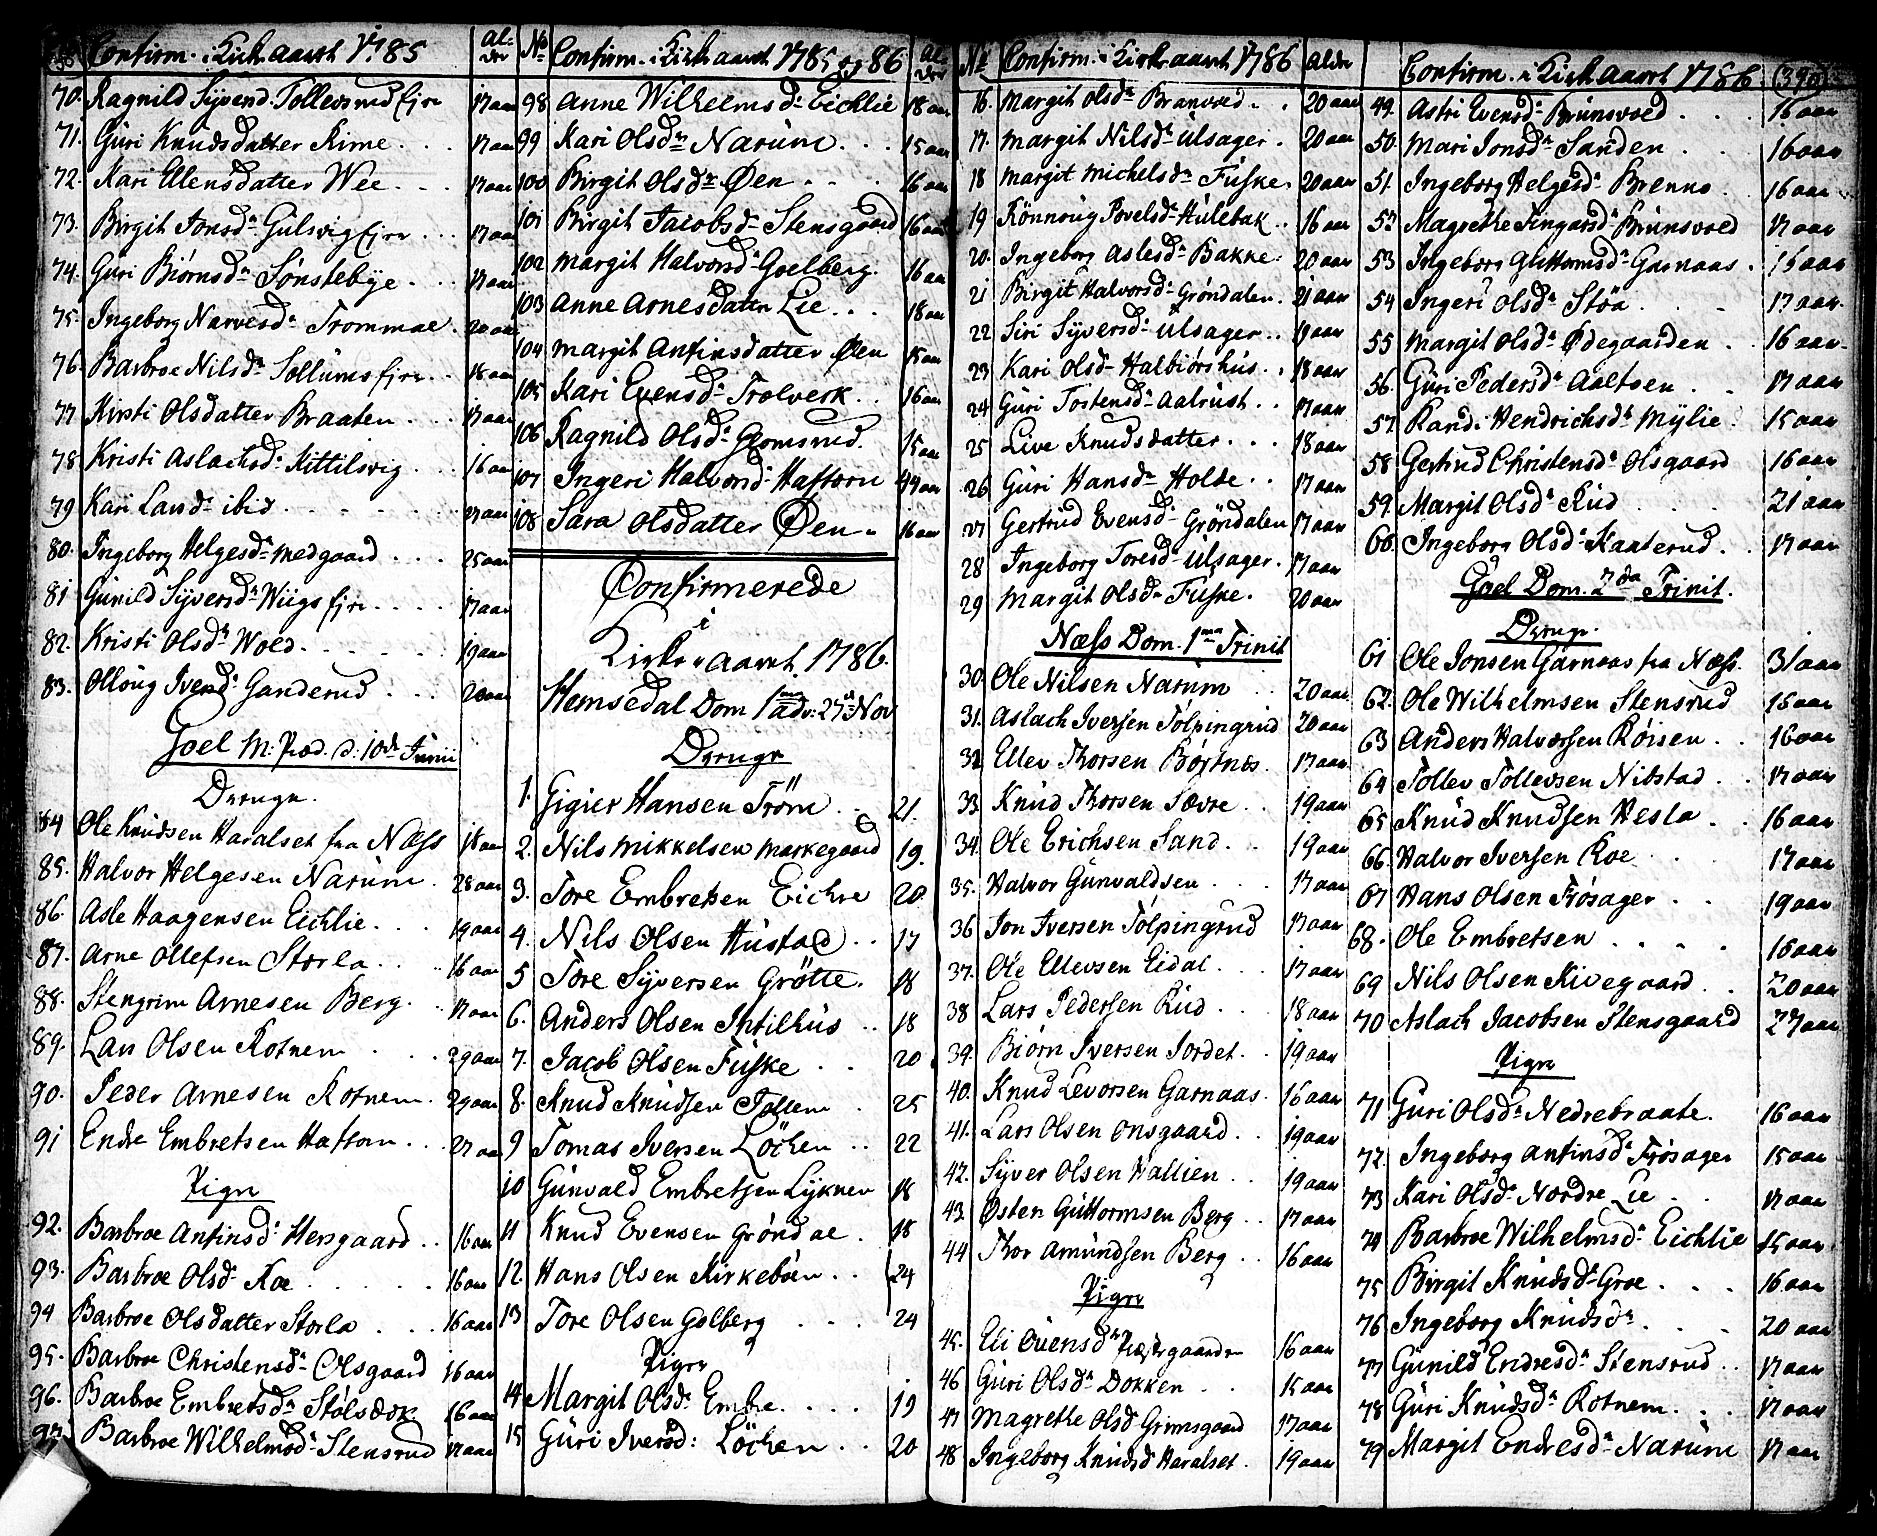 Confirm. i Kirk aaret 1785 Alder
70. Ragnild Syversd. Tollevsrud Ejer 17 aar
71. Guri Knudsdatter Rime 17 aar
72. Kari Ellensdatter Wee 17 aar
73. Birgit Jonsd. Gulsvig Ejer 17 aar
74. Guri Biörnsd. Sönstebye 17 aar
75. Ingeborg Narvesd. Trommae 20 aar
76. Barbroe Nilsd. 18 aar
77. Kirsti Olsdatter Braaten 17 aar
78 Kristi Aslachsd. Kittilsvig 16 aar
79 Kari Larsd. ibid 17 aar
80. Ingeborg Helgesd. Medgaard 25 aar
81 Gunild Syversd. 17 aar
82. Kristi Olsd. Wold 19 aar
83. Ollöug Iversd. Ganderud 20 aar
Goel M: Præd. d: 10de Junii
Drenge.
84 Ole Knudsen Haralset fra Næss 18 aar
85. Halvor Helgesen Narum 28 aar
86. Asle Haagensen Eichlie 19 aar
87. Arne Ollefsen Storla 16 aar
88. Stengrim Arnesen Berg 17 aar
89. Lars Olsen Rotnem 29 aar
90. Peder Arnesen Rotnem 29 aar
91 Endre Embretsen Haftorn 27 aar
Piger
92. Barbroe Anfinsd. Hersgaard 16 aar
93. Barbroe Olsd. Roe 16 aar
94 Barbroe Olsdatter Storla 16 aar
95. Barbroe Christensd. Olsgaard 16 aar
96. Barbroe Embretsd. Stölsdok 16 aar
97. Barbroe Wilhelmsd. Stensrud 17 aar
No Confirm. i Kirk aaret 1785 og 86 Alder
98 Anne Wilhelmsd. Eichlie 18 aar
99 Kari Olsdr Narum 15 aar
100 Birgit Olsdr Øen 16 aar
101 Birgit Jacobsd. Stensgaard 16 aar
102 Margit Halvorsd. Goelberg 16 aar
103 Anne Arnesdatter Lie 18 aar
104 Margit Anfinsdatter Øen 15 aar
105 Kari Evensd. Trolverk 16 aar
106 Ragnild Olsd. Glomsrud 15 aar
107 Ingeri Halvorsd. Haftorn 44 aar
108 Sara Olsdatter Øen 16 aar
Confirmerede
i
Kirke aaret 1786.
Hemsedal Dom 1ma adv: 27de Nov
Drenge
1. Gigier Hansen Tröm 21.
2. Nils Mikkelsen Markegaard 19.
3. Tore Embretsen Eichre 20
4. Nils Olsen Hustad 17
5 Tore Syversen Grötte 18
6. Anders Olsen Intilhus 18
7. Jacob Olsen Fuske 20
8. Knud Knudsen Tollem 25
9 Tomas Iversen Löchen 22
10 Gunvald Embretsen Lykner 18
11 Knud Evensen Gröndae 18
12. Hans Olsen Kirkeböen 24
13 Tore Olsen Golberg 24
Piger
14 Margit Olsd. Embre 19
15 Guri Iversd: Löchen 20
No Confirm. i Kirk aaret 1786 Alder
16. Margit Olsdr Branvold 20 aar
17. Margit Nilsdr Ulsager 20 aar
18 Margit Michelsdr Fuske 20 aar
19 Rönnoug Povelsd. Hulebak 16 aar
20. Ingeborg Aslesd. Bakke 20 aar
21 Birgit Halvorsd. Gröndalen 21 aar
22 Siri Syversd. Ulsager 19 aar
23 Kari Olsd. Halbiörshus 18 aar
24 Guri Torstensd. Aalrust 17 aar
25 Live Knudsdatter 18 aar
26 Guri Hansd. Holde 17 aar
27 Gertrud Evensd. Gröndalen 17 aar
28 Ingeborg Toresd. Ulsager 17 aar
29 Margit Olsdr Fuske 20 aar
Næss Dom. 1ma Trinit
30. Ole Nilsen Narum 20 aar
31. Aslach Iversen Tolpingrud 20 aar
32 Ellev Thorsen Börtnes 17 aar
33 Knud Thorsen Sævre 19 aar
34. Ole Erichsen Sand 19 aar
35. Halvor Gunvaldsen 17 aar
36 Jon Iversen Tolpingrud 17 aar
37. Ole Ellevsen Eidal 17 aar
38 Lars Pedersen Rud 18 aar
39. Biörn Iversen Jordet 19 aar
40. Knud Levorsen Garnaas 16 aar
41. Lars Olsen Onsgaard 19 aar
42. Syver Olsen Wallien 19 aar
43. Østen Guttormsen Berg 17 aar
44 Thor Amundsen Berg 16 aar
Piger
45. Eli Ovensdr Præstegaarden 16 aar
46 Guri Olsdr Dokken 15 aar
47 Magrethe Olsd. Grimsgaard 17 aar
48 Ingeborg Knudsd Haralset 19 aar
Confirm. i Kirk aaret 1786
49. Astri Evensd. Brunsvoed 16 aar
50. Mari Jonsdr Sanden 16 aar
51. Ingeborg Helgesd. Brenno 16 aar
52 Magrethe Fingarsd. Brunsvoed 17 aar
53 Ingeborg Guttormsd. Garnaas 15 aar
54 Ingeri Olsdr Stöa 17 aar
55 Margit Olsdr Ødegaarden 16 aar
56. Guri Pedersd. Aaltoen 17 aar
57. Rand. Hendrichsd. Mylie 15 aar
58 Gertrud Christensd. Olsgaard 16 aar
59. Margit Olsd. Rud 21 aar
60. Ingeborg Olsd. Kaaterud 17 aar
Goel Dom. 2da Trinit.
Drenge.
61 Ole Jonsen Garnaas fra Næss 31 aar
62. Ole Wilhelmsen Stensrud 15 aar
63 Anders Halvorsen Röisen 16 aar
64 Tollev Tollevsen Nibstad 17 aar
65 Knud Knudsen Hesla 16 aar
66. Halvor Iversen Roe 17 aar
67 Hans Olsen Frösager 19 aar
68. Ole Embretsen 15 aar
69 Nils Olsen Kivegaard 20 aar
70 Aslach Jacobsen Stensgaard 27 aar
Piger
71 Guri Olsdr Nedrebraate 16 aar
72. Ingeborg Anfinsd. Frösager 15 aar
73 Kari Olsd. Nordre Lie 17 aar
74 Barbroe Wilhelmsd. Eichlie 15 aar
75 Birgit Knudsd. Groe 16 aar
76 Ingeborg Knudsdr 20 aar
77 Gunild Endresd. Stensrud 17 aar
78 Guri Knudsdr Rotnem 17 aar
79 Margit Endresd. Narum 17 aar